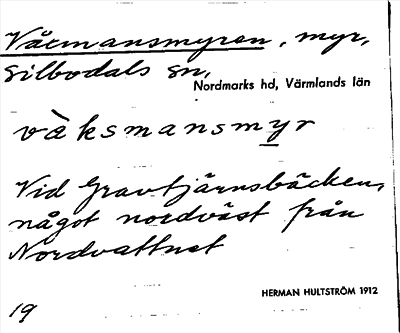 Vårmansmyren, myr,
Silbodals sn,
Nordmarks hd, Värmlands län
vàksmansmyr
Vid Gravtjärnsbäcken,
något nordväst från
Nordvattnet
HERMAN HULTSTRÖM 1912
19